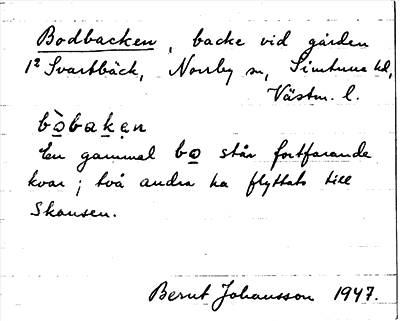 Bodbacken, backe vid gården
1² Svartbäck, Norrby sn, Simtuna hd,
Västm. l.
bò̠bak̠ẹn
En gammal bo̠ står fortfarande
kvar; två andra ha flyttats till
Skansen.
Bernt Johansson 1947.